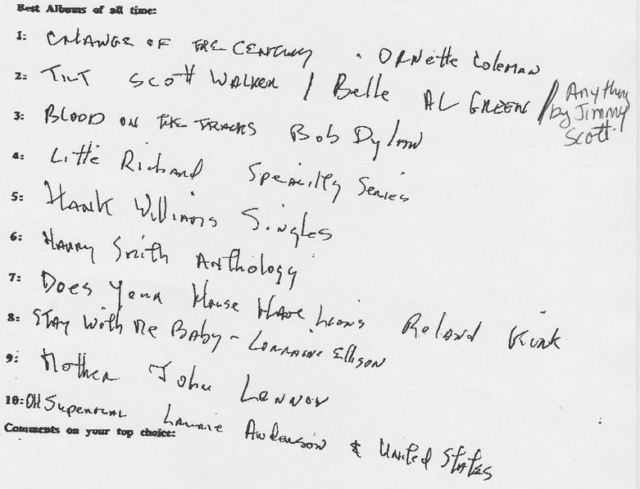 Best Albums of all time:
1: CHANGE OF THE CENTURY . ORNette Coleman
2: TILT SCOTT WALKER / Belle AL GREEN / Anything by Jimmy Scott.
3: BLOOD ON THE TRACKS Bob Dylan
4: Little Richard Specialty Series
5: Hank Williams Singles
6: Harry Smith Anthology
7: Does Your House Have Lions Roland Kirk
8: STAY With Me Baby - Lorraine Ellison
9: Mother John Lennon
10: OH Superman Laurie Anderson & United States
Comments on your top choice: